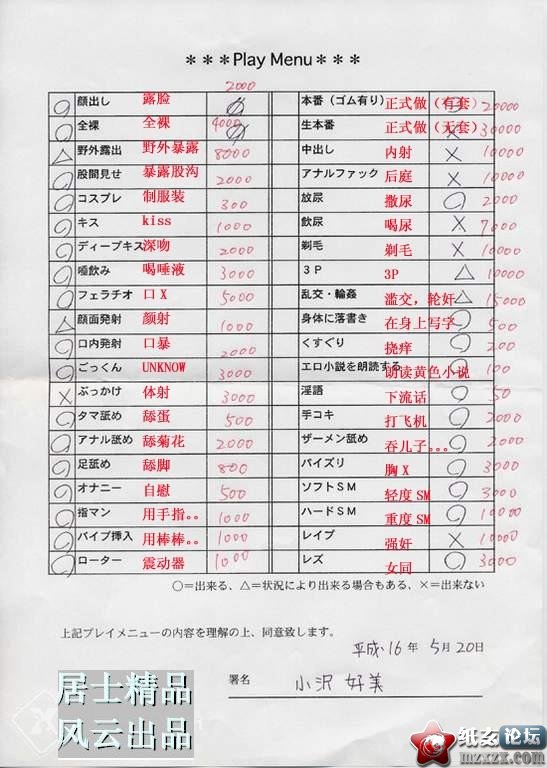 ***Play Menu***
2000
顔出し 露脸 本番(ゴム有り) 正式做(有套) 20000
全裸 全裸 4000 生本番 正式做(无套) × 30000
△ 野外露出 野外暴露 8000 中出し 内射 × 10000
○ 股間見せ 暴露股沟 2000 アナルファック 后庭 × 10000
○ コスプレ 制服装 300 放尿 撒尿 ○ 2000
○ キス kiss 1000 飲尿 喝尿 × 7000
○ ディープキス 深吻 2000 剃毛 剃毛 × 10000
○ 唾飲み 喝唾液 3000 3P 3P △ 10000
○ フェラチオ 口X 5000 乱交・輪姦 滥交,轮奸 △ 15000
△ 顔面発射 颜射 1000 身体に落書き 在身上写字 ○ 500
○ 口内発射 口暴 2000 くすぐり 挠痒 ○ 200
○ ごっくん UNKNOW 3000 エロ小説を朗読する 朗读黄色小说 ○ 100
× ぶっかけ 体射 3000 淫語 下流话 ○ 50
○ タマ舐め 舔蛋 500 手コキ 打飞机 ○ 2000
○ アナル舐め 舔菊花 2000 ザーメン舐め 吞儿子。。。 ○ 2000
○ 足舐め 舔脚 800 パイズリ 胸X ○ 3000
○ オナニー 自慰 500 ソフトSM 轻度SM ○ 3000
○ 指マン 用手指。。 1000 ハードSM 重度SM ○ 10000
○ バイブ挿入 用棒棒。。 1000 レイプ 强奸 × 10000
○ ローター 震动器 1000 レズ 女同 ○ 3000
○=出来る、△=状況により出来る場合もある、×=出来ない
上記プレイメニューの内容を理解の上、同意致します。
平成16年 5月20日
署名 小沢 好美
居士精品
风云出品
纸女论坛
mzxzx.com